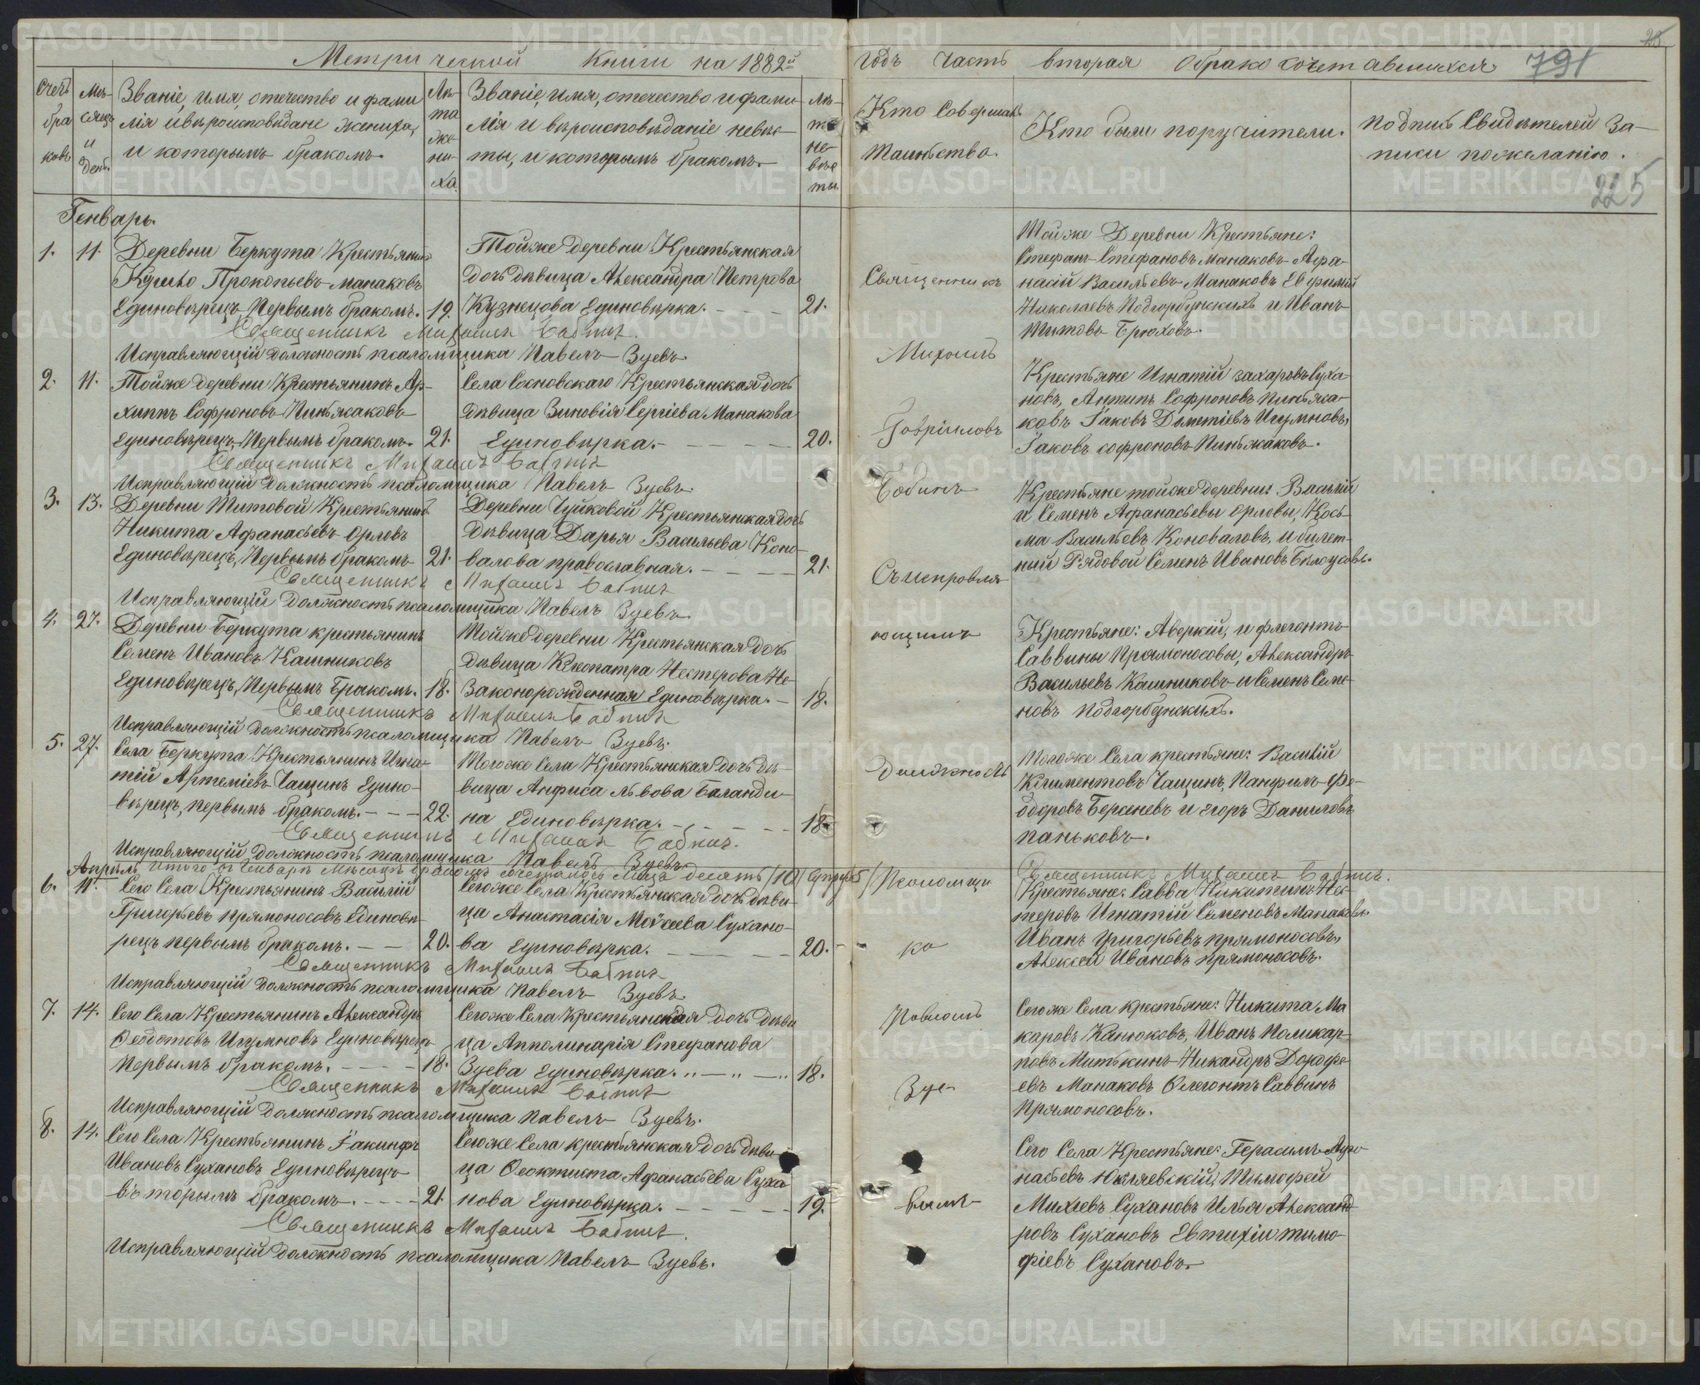 Метрической Книги на 1882й годъ Часть вторая О бракосочетавшихся 791
Счетъ браковъ
Мѣсяцъ и день.
Званіе, имя, отечество и фамилія и вѣроисповѣданіе жениха, и которымъ бракомъ.
Лѣта жениха.
Званіе, имя, отечество и фамилія и вѣроисповѣданіе невѣсты, и которымъ бракомъ.
Лѣта невѣсты
Кто Совершалъ
Таинство.
Кто были поручители.
Подпись Свидѣтелей Записи по желанію.
225
Генварь.
1. 11. Деревни Беркута Крестьянинъ
Прокопьевъ Манаковъ
Единовѣрецъ, Первымъ бракомъ. 19.
Тойже деревни Крестьянская
дочь дѣвица Александра Петрова
Кузнецова Единовѣрка. 21.
Тойже Деревни Крестьяне:
Стефанъ Стефановъ Манаковъ Афа-
насій Васильевъ Манаковъ Ефримій
Николаевъ Подгорбунскихъ и Иванъ
Титовъ Брюховъ.
Священникъ Михаилъ Бабинъ
Исправляющій должность псаломщика Павелъ Зуевъ.
2. 11. Тойже деревни Крестьянинъ Ар-
хиппъ Софроновъ Пинжаковъ
Единовѣрецъ, Первымъ бракомъ. 21.
Села Сосновскаго Крестьянская дочь
Дѣвица Зиновія Сергіева Манакова
Единовѣрка. 20.
Крестьяне Игнатій Захаровъ Суха-
новъ, Антипъ Софроновъ Пинжа-
ковъ Іаковъ Дементіевъ Игумновъ,
Іаковъ Софроновъ Пинжаковъ.
Священникъ Михаилъ Бабинъ
Исправляющій Должность псаломщика Павелъ Зуевъ.
3. 13. Деревни Титовой Крестьянинъ
Никита Афанасьевъ Орловъ
Единовѣрецъ, Первымъ бракомъ 21.
Деревни Чуйковой Крестьянская дочь
Дѣвица Дарья Васильева Коно-
валова православная. 21.
Крестьяне тойже деревни: Василій
и Семенъ Афанасьевы Орловы, Кось-
ма Васильевъ Коноваловъ, и билет-
ный Рядовой Семенъ Ивановъ Бѣлоусовъ.
Священникъ Михаилъ Бабинъ
Исправляющій Должность псаломщика Павелъ Зуевъ
4. 27. Деревни Беркута крестьянинъ
Семенъ Ивановъ Кашниковъ
Единовѣрецъ, Первымъ бракомъ. 18.
Тойже деревни Крестьянская дочь
Дѣвица Клеопатра Нестерова Не-
законорожденная Единовѣрка. 18.
Крестьяне: Аверкій, и Флегонтъ
Саввины Прямоносовы, Александръ
Васильевъ Кашниковъ и Семенъ Семе-
новъ Подгорбунскихъ.
Священникъ Михаилъ Бабинъ
Исправляющій Должность псаломщика Павелъ Зуевъ.
5. 27. Села Беркута Крестьянинъ Игна-
тій Артеміевъ Чащинъ Едино-
вѣрецъ, первымъ бракомъ. 22.
Тогоже Села Крестьянская дочь дѣ-
вица Анфиса Львова Баланди-
на Единовѣрка. 18.
Тогоже Села крестьяне: Василій
Климентовъ Чащинъ, Панфилъ Фе-
доровъ Берсеневъ и Егоръ Даниловъ
Паньковъ.
Священникъ Михаилъ Бабинъ.
Исправляющій Должность псаломщика Павелъ Зуевъ.
Итого въ Генварѣ мѣсяцѣ бракомъ сочеталось лица десять /10/ супруж. /5/
Священникъ Михаилъ Бабинъ.
Апрѣль
6. 11. Сего Села Крестьянинъ Василій
Григорьевъ Прямоносовъ, Единовѣ-
рецъ первымъ бракомъ. 20.
Сегоже Села Крестьянская дочь дѣви-
ца Анастасія Моѵсеева Сухано-
ва Единовѣрка. 20.
Крестьяне: Савва Никитинъ Нес-
теровъ Игнатій Семеновъ Манаковъ.
Иванъ Григорьевъ Прямоносовъ,
Алексѣй Ивановъ Прямоносовъ.
Священникъ Михаилъ Бабинъ
Исправляющій Должность псаломщика Павелъ Зуевъ
7. 14. Сего Села Крестьянинъ Александръ
Ѳеодотовъ Игумновъ Единовѣрецъ
Первымъ бракомъ. 18.
Сегоже Села Крестьянская дочь дѣви-
ца Апполинарія Стефанова
Зуева Единовѣрка. 18.
Сегоже Села крестьяне: Никита Ма-
каровъ Канюковъ, Иванъ Поликар-
повъ Митькинъ Никандръ Дорофе-
евъ Манаковъ Флегонтъ Саввинъ
Прямоносовъ.
Священникъ Михаилъ Бабинъ
Исправляющій Должность псаломщика Павелъ Зуевъ.
8. 14. Сего Села Крестьянинъ Іакинфъ
Ивановъ Сухановъ Единовѣрецъ
вторымъ бракомъ. 21.
Сегоже Села крестьянская дочь дѣви-
ца Ѳеоктиста Афанасьева Суха-
нова Единовѣрка. 19.
Сего Села Крестьяне: Герасимъ Афа-
насьевъ Тимофей
Михѣевъ Сухановъ Илья Александ-
ровъ Сухановъ Евтихій Тимо-
фіевъ Сухановъ.
Священникъ Михаилъ Бабинъ.
Исправляющій Должность псаломщика Павелъ Зуевъ.
Священникъ
Михаилъ
Гавріиловъ
Бабинъ
Съ исправля-
ющимъ
Должность
Псаломщи-
ка
Павломъ
Зуе-
вымъ
METRIKI.GASO-URAL.RU